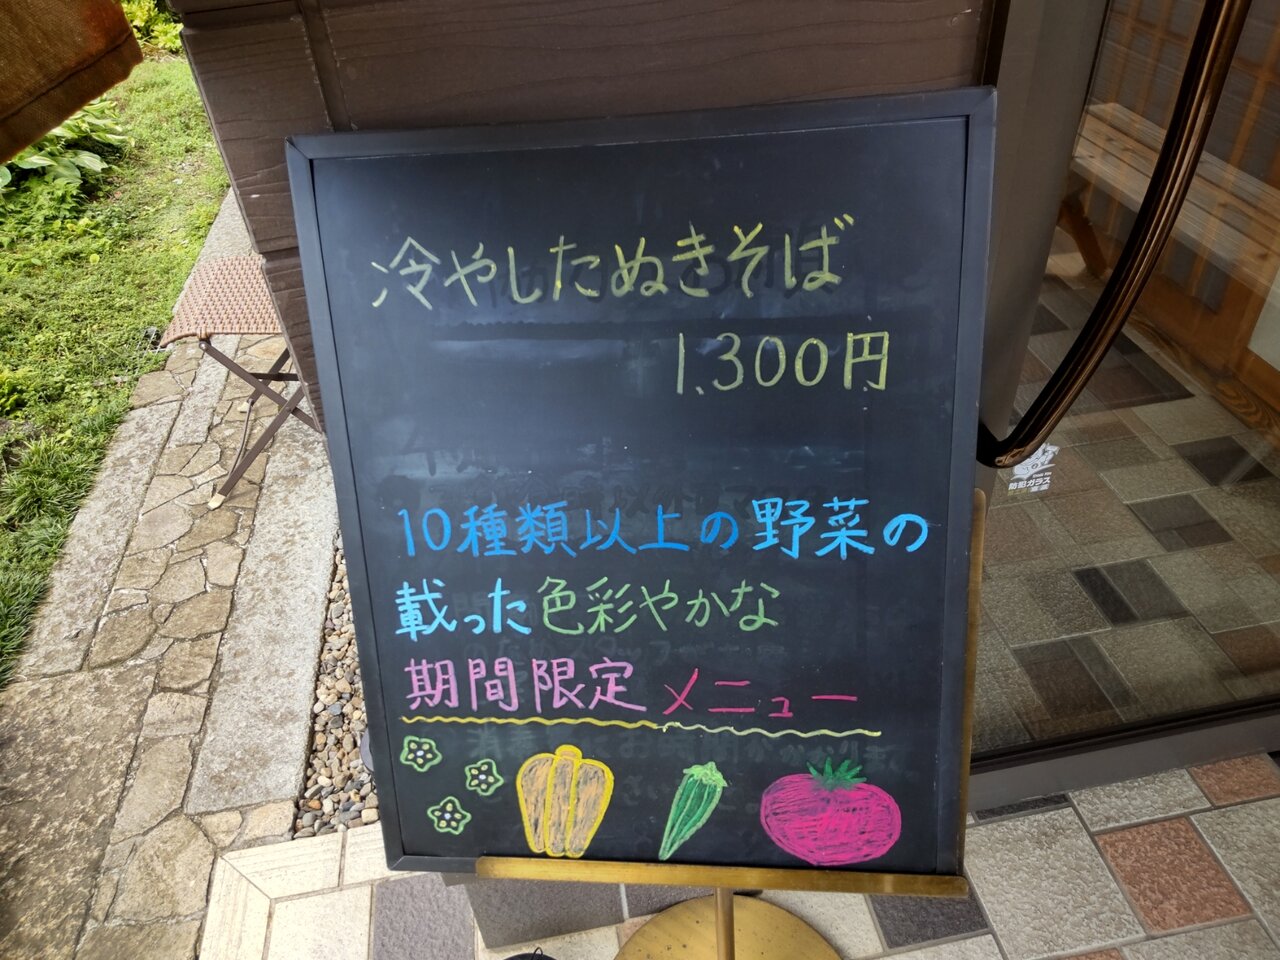 冷やしたぬきそば
1,300円
10種類以上の野菜の
載った色彩やかな
期間限定メニュー
防犯ガラス